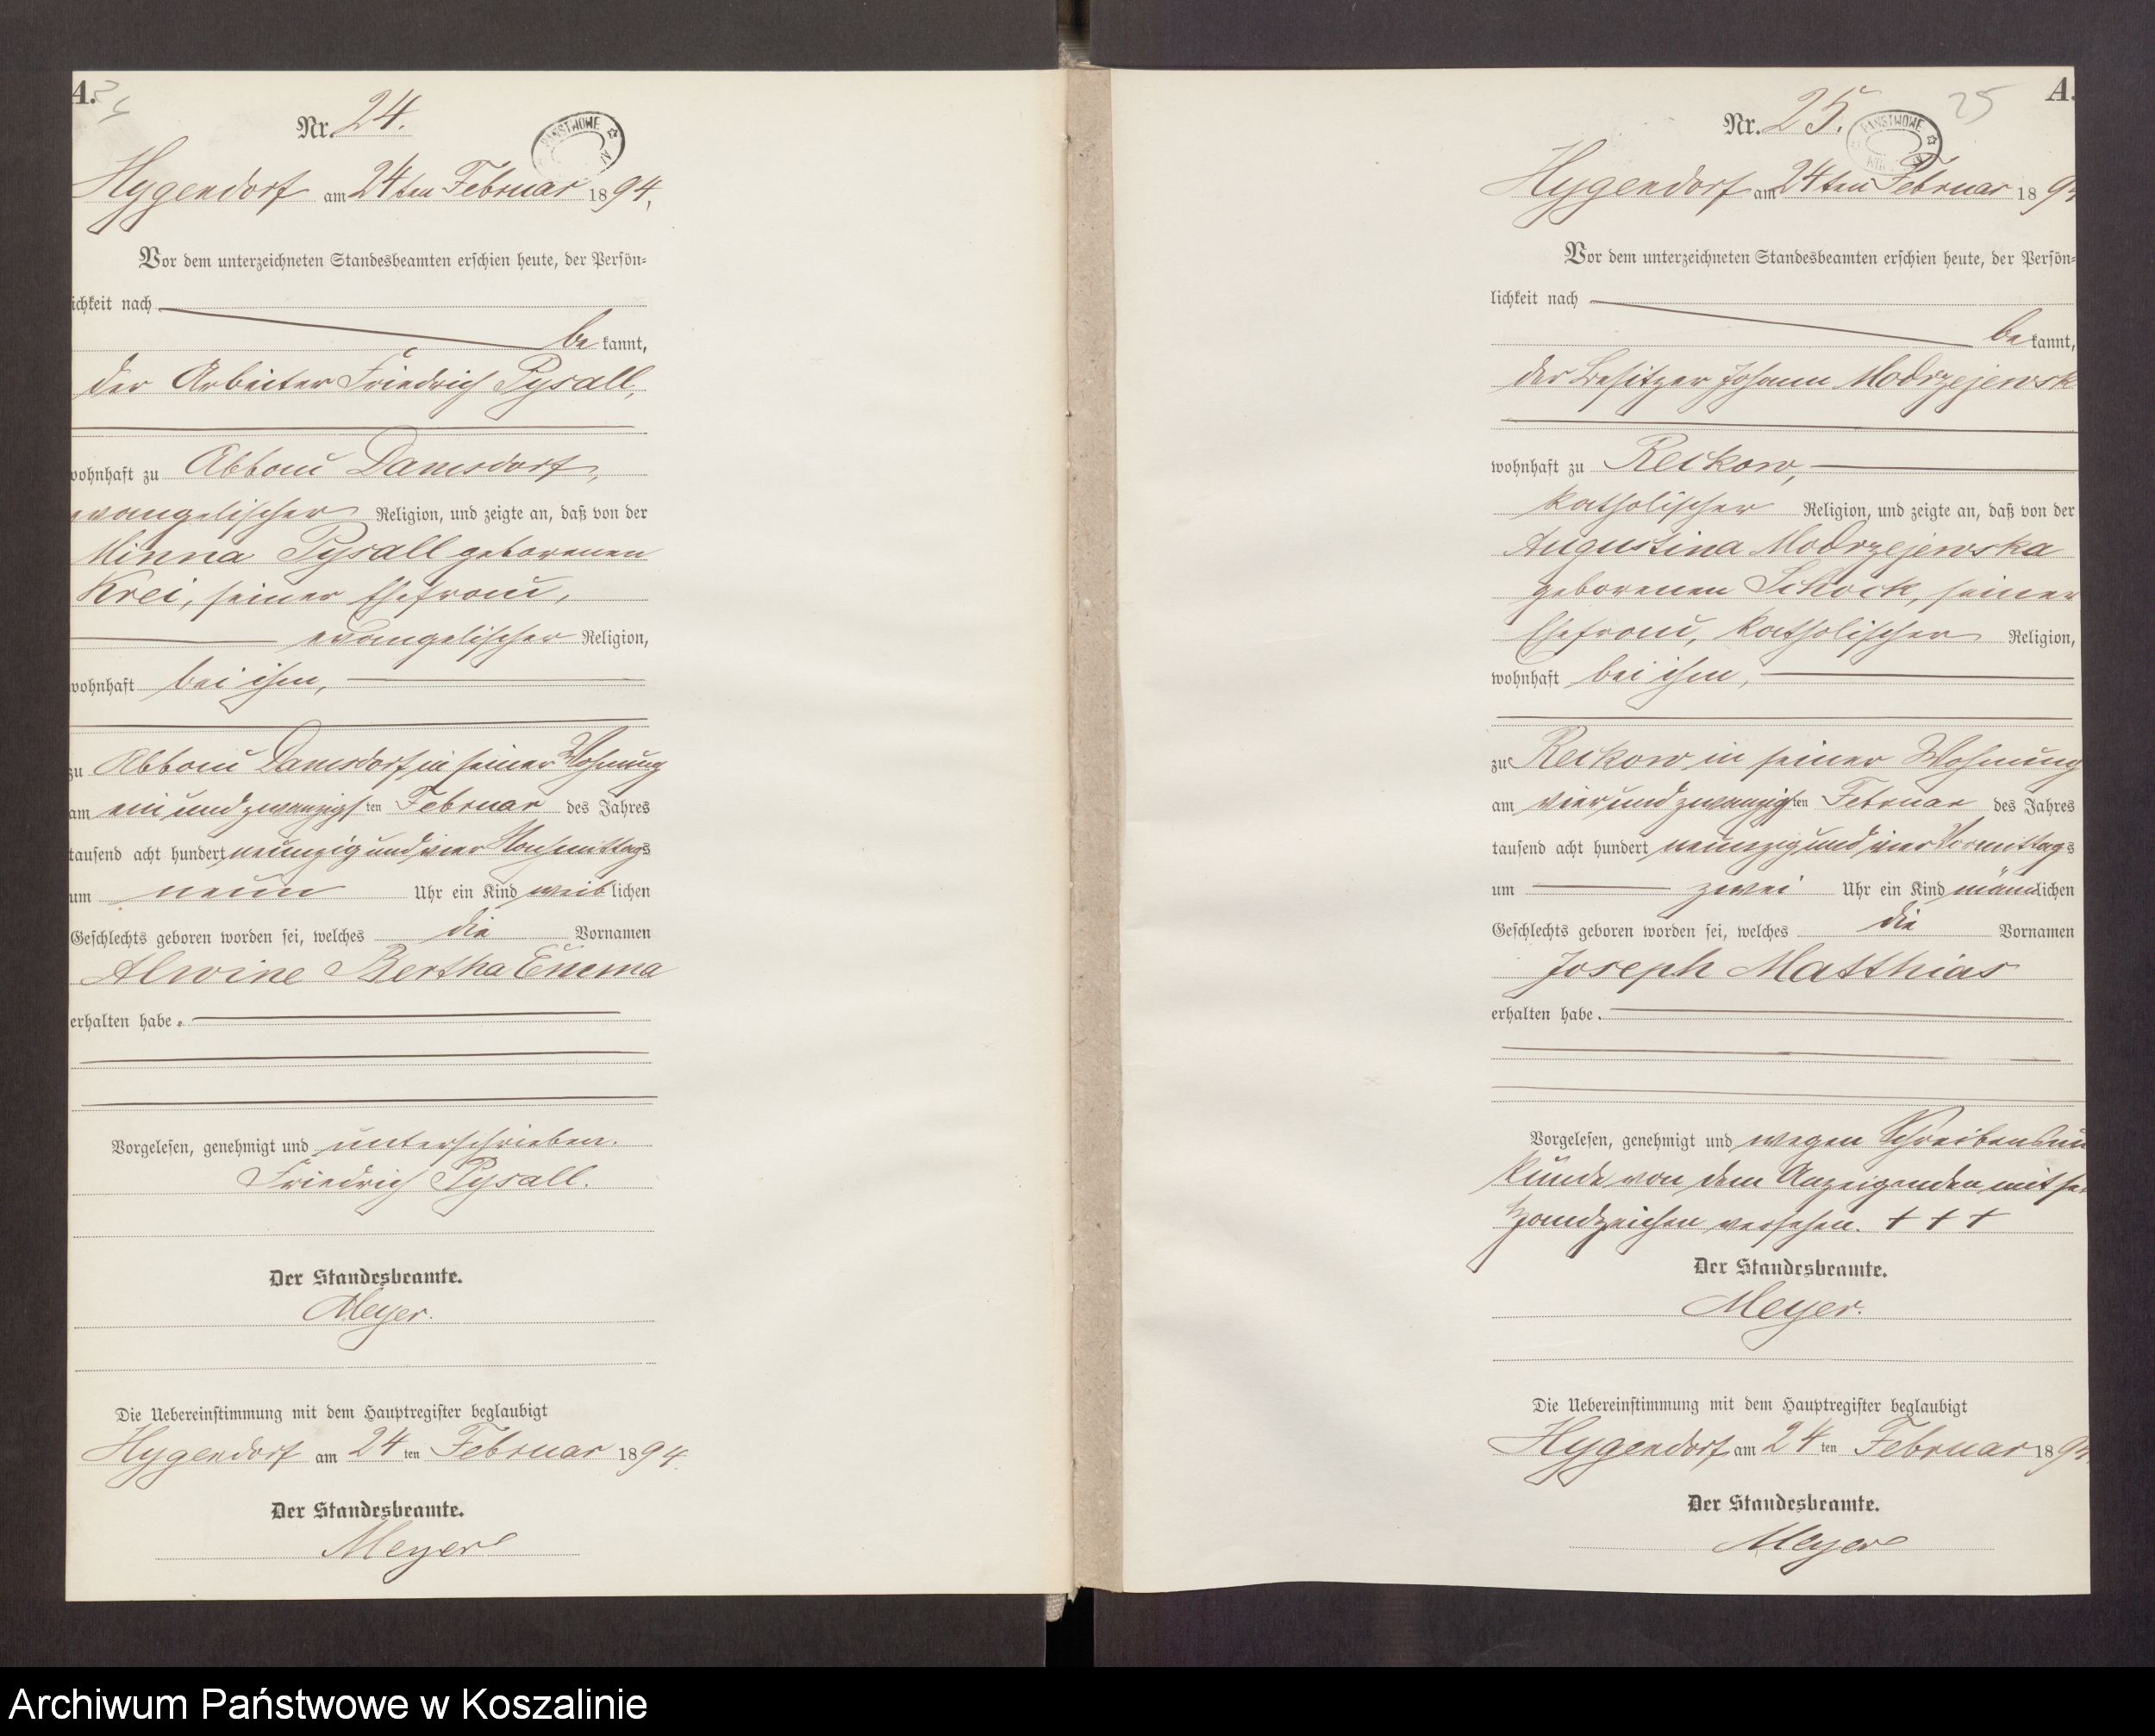 A.
24
Nr. 24.
PAŃSTWOWE
Hygendorf am 24ten Februar 1894,
Vor dem unterzeichneten Standesbeamten erschien heute, der Persön-
ichkeit nach
be kannt,
der Arbeiter Friedrich Pysall,
wohnhaft zu Abbau Damsdorf,
evangelischer Religion, und zeigte an, daß von der
Minna Pysall geborenen
Krei, seiner Ehefrau,
evangelischer Religion,
wohnhaft bei ihm,
zu Abbau Damsdorf in seiner Wohnung
am ein und zwanzigsten Februar des Jahres
tausend acht hundert neunzig und vier Nachmittags
um neun Uhr ein Kind weiblichen
Geschlechts geboren worden sei, welches die Vornamen
Alwine Bertha Emma
erhalten habe.
Vorgelesen, genehmigt und unterschrieben.
Friedrich Pysall.
Der Standesbeamte.
Meyer.
Die Uebereinstimmung mit dem Hauptregister beglaubigt
Hygendorf am 24ten Februar 1894.
Der Standesbeamte.
Meyer
A.
25
Nr. 25.
PAŃSTWOWE
Hygendorf am 24ten Februar 1894
Vor dem unterzeichneten Standesbeamten erschien heute, der Persön-
lichkeit nach
be kannt,
der Besitzer Johann Modrzejewsk
wohnhaft zu Reckow,
katholischer Religion, und zeigte an, daß von der
Augustina Modrzejewska
geborenen Schock, seiner
Ehefrau, katholischer Religion,
wohnhaft bei ihm,
zu Reckow in seiner Wohnung
am vier und zwanzigsten Februar des Jahres
tausend acht hundert neunzig und vier Vormittags
um zwei Uhr ein Kind männlichen
Geschlechts geboren worden sei, welches die Vornamen
Joseph Matthias
erhalten habe.
Vorgelesen, genehmigt und wegen Schreibensun
kunde von dem Anzeigenden mit se
Handzeichen versehen. + + +
Der Standesbeamte.
Meyer.
Die Uebereinstimmung mit dem Hauptregister beglaubigt
Hygendorf am 24ten Februar 1894
Der Standesbeamte.
Meyer
Archiwum Państwowe w Koszalinie